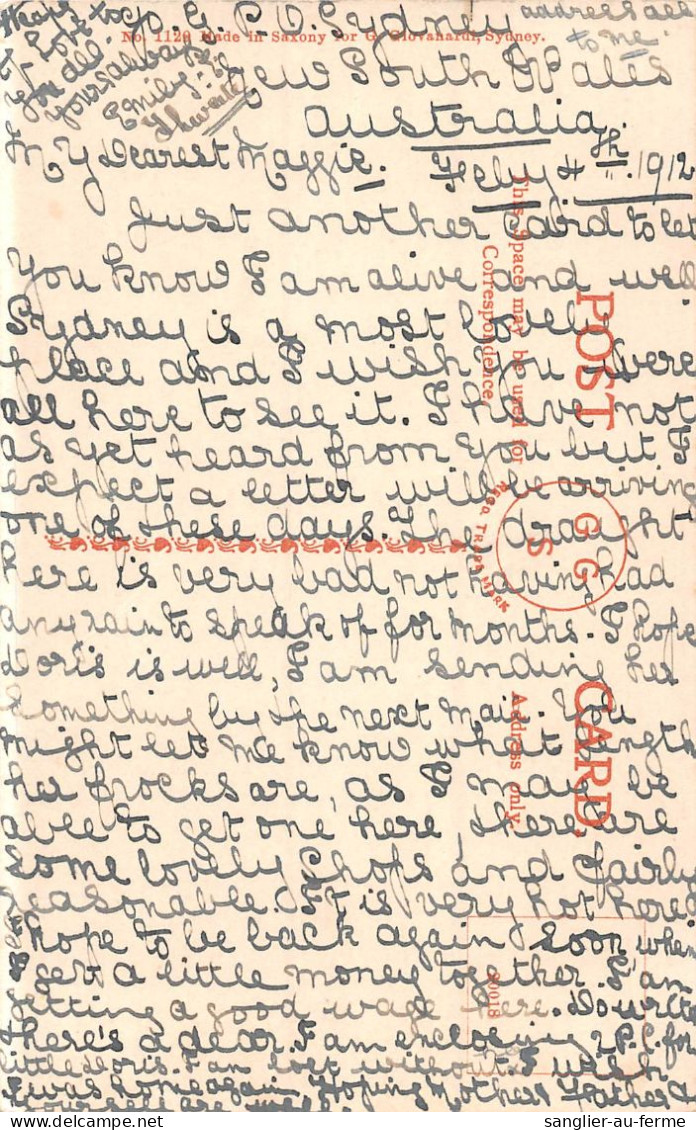 address all
to me.
G. P. O. Sydney
No. 1129 Made in Saxony for G. Giovanardi, Sydney.
New South Wales
Australia.
you all.
yours always
Emily
My Dearest Maggie. Feby 4th 1912
Just another Card to let
you know I am alive and well
Sydney is a most lovely
place and I wish you were
all here to see it. I have not
as yet heard from you but I
expect a letter will be arriving
one of these days. The draught
here is very bad not having had
any rain to speak of for months. I hope
Doris is well, I am sending her
something by the next mail. You
might let me know what length
her frocks are, as I may be
able to get one here, there are
some lovely Shops and fairly
reasonable. It is very hot here.
I hope to be back again soon when
I get a little money together. I am
getting a good wage here. Do write
there's a dear. I am enclosing 2 P.C. for
little Doris. I am lost without I wish
I was home again, Hoping Mother Father &
yourself are well
POST CARD.
This space may be used for
Correspondence
Address only.
G G S
REGD. TRADE MARK
sanglier-au-ferme